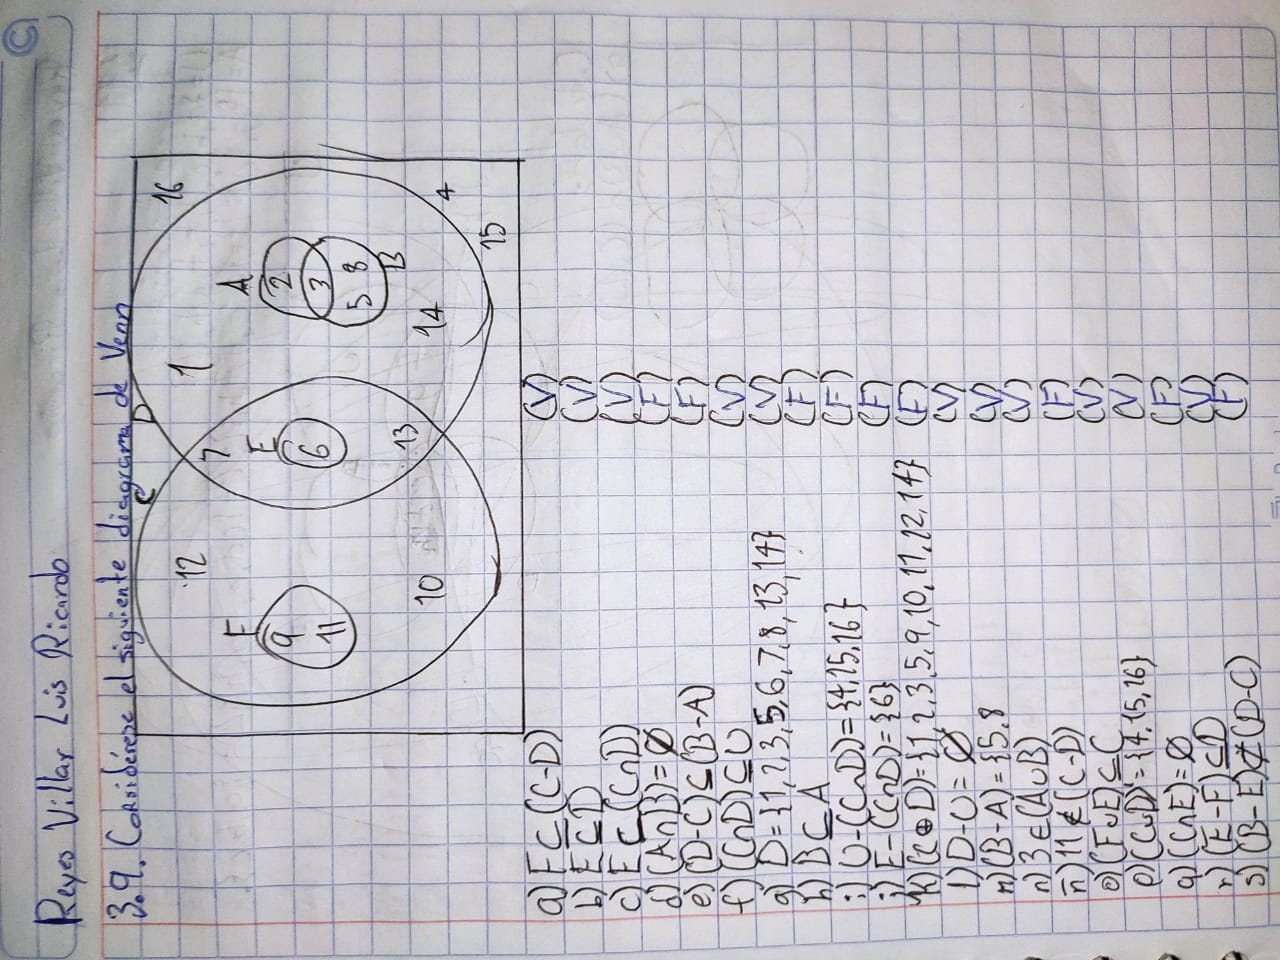 ©
Reyes Villar Luis Ricardo
3.9. Considérese el siguiente diagrama de Venn
C D
12 7 1 16
F E A
9 6 2
11 3
5 8
B
13
10 14 4
15
a) F⊆(C-D) (V)
b) E⊆D (V)
c) E⊆(C∩D) (V)
d) (A∩B)=Ø (F)
e) (D-C)⊆(B-A) (F)
f) (C∩D)⊆U (V)
g) D={1,2,3,5,6,7,8,13,14} (V)
h) B⊆A (F)
i) U-(C∩D)={4,15,16} (F)
j) E-(C∩D)={6} (F)
k) (C⊕D)={1,2,3,5,9,10,11,12,14} (F)
l) D-U=Ø (V)
m) (B-A)={5,8 (V)
n) 3∈(A∪B) (V)
ñ) 11∉(C-D) (F)
o) (F∪E)⊆C (V)
p) (C∪D)'={4,15,16} (V)
q) (C∩E)=Ø (F)
r) (E-F)⊆D (V)
s) (B-E)⊄(D-C) (F)